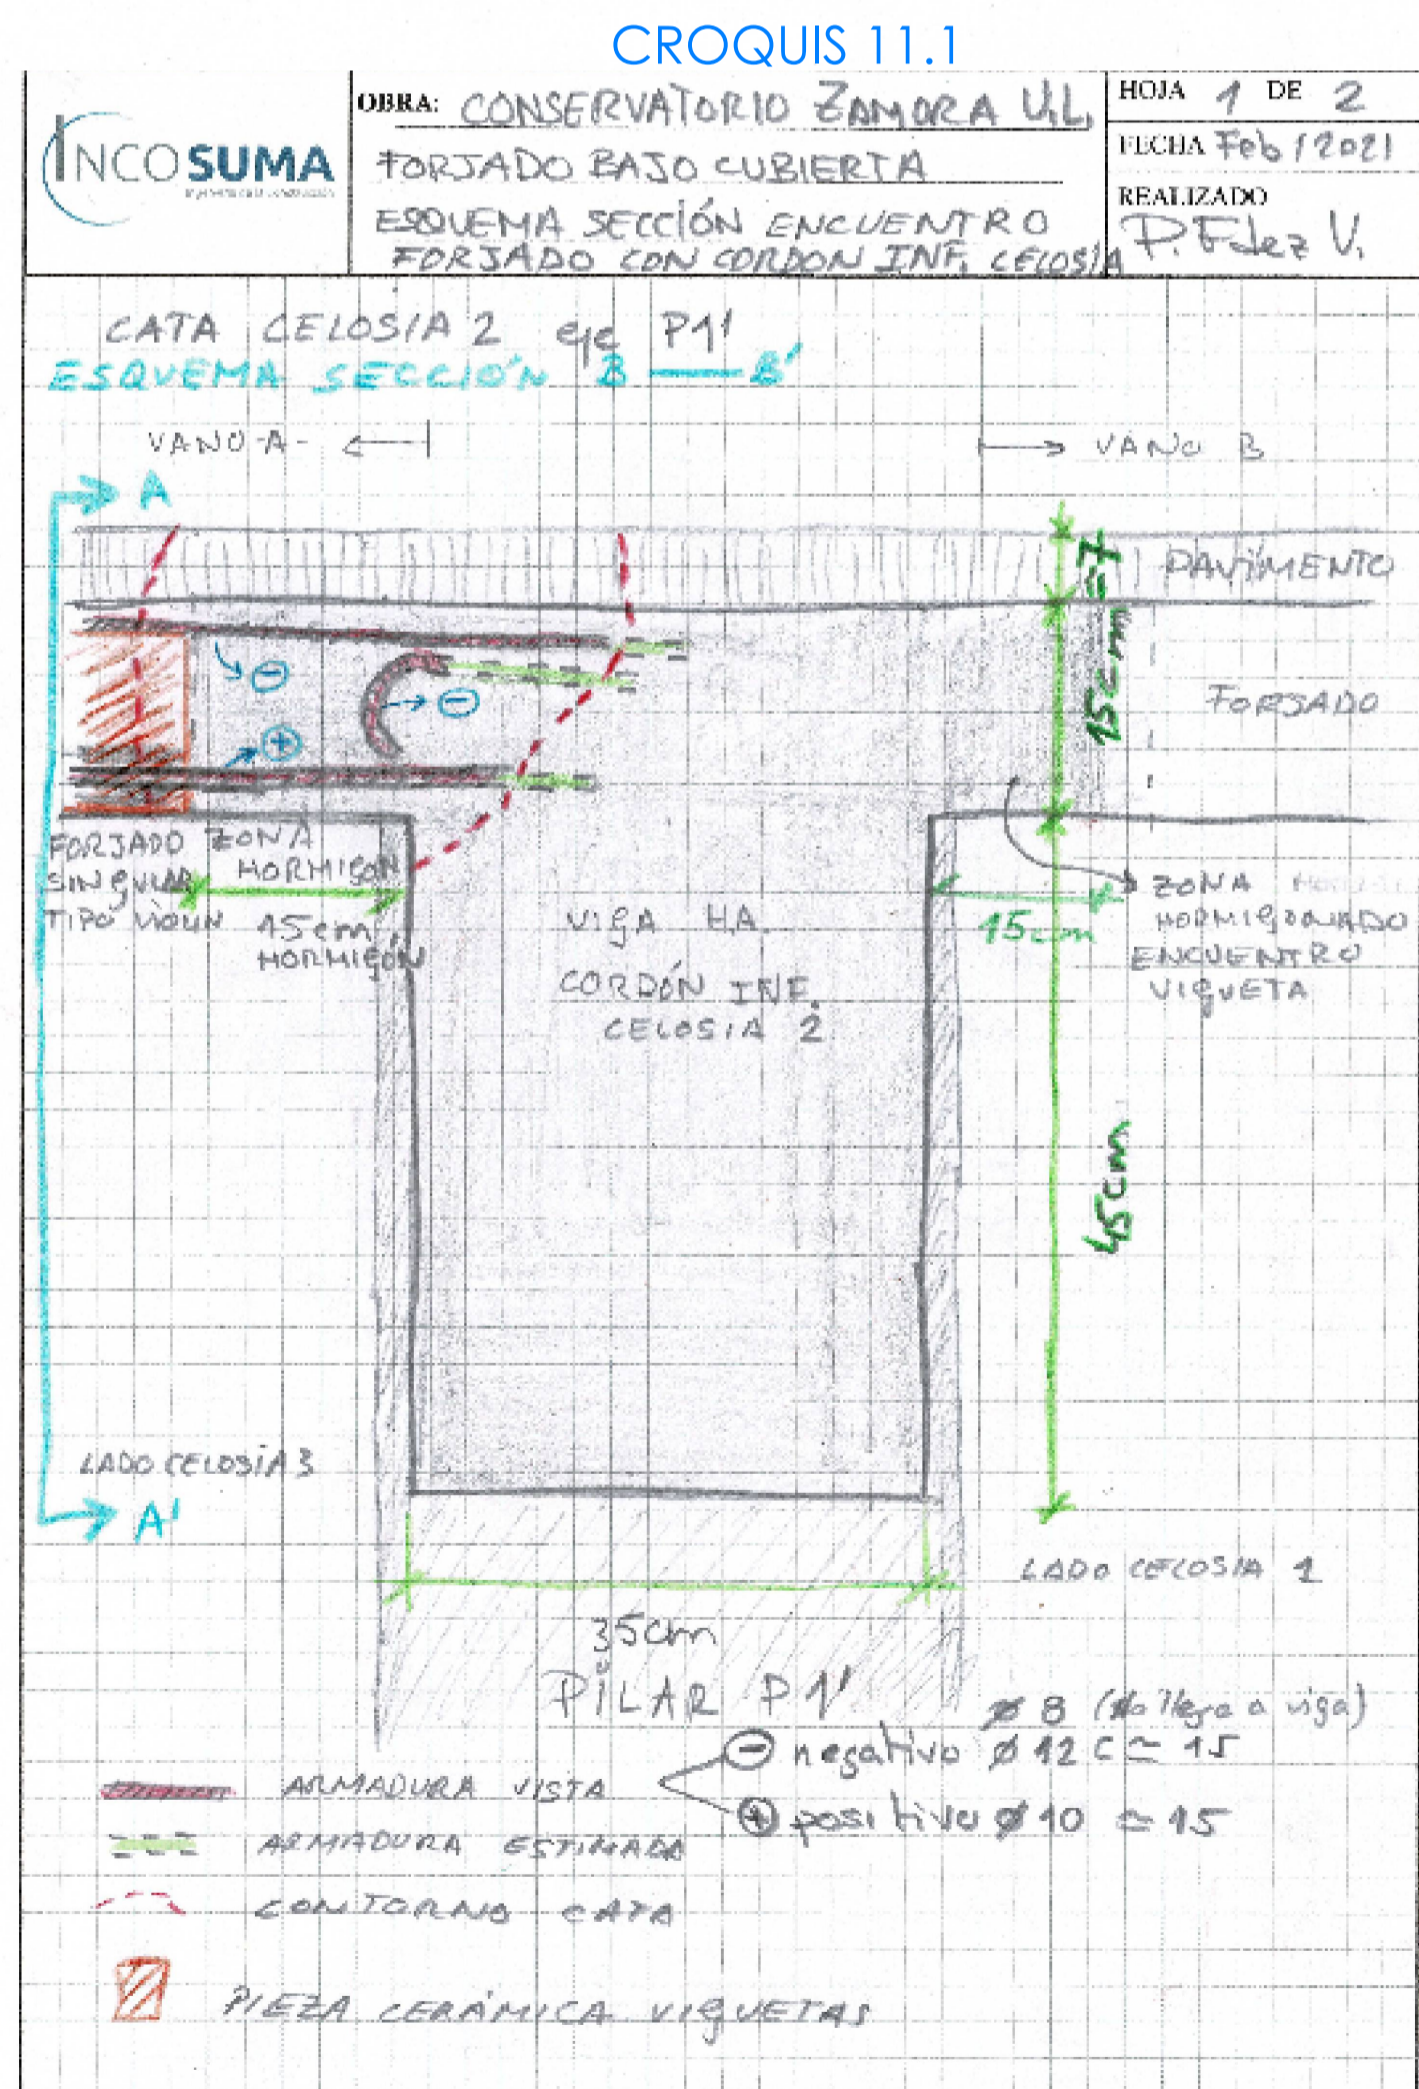 CROQUIS 11.1
INCOSUMA
OBRA: CONSERVATORIO ZAMORA U.L.
FORJADO BAJO CUBIERTA
ESQUEMA SECCIÓN ENCUENTRO
FORJADO CON CORDON INF. CELOSÍA
HOJA 1 DE 2
FECHA Feb / 2021
REALIZADO
P. Fdez V.
CATA CELOSIA 2 eje P1'
ESQUEMA SECCIÓN B — B'
VANO -A-
VANO B
A
PAVIMENTO
7
15cm
FORJADO
FORJADO
SINGULAR
TIPO
ZONA
HORMIGON
15cm
HORMIGÓN
VIGA HA.
CORDÓN INF.
CELOSIA 2
15cm
ZONA
HORMIGONADO
ENCUENTRO
VIGUETA
45cm
LADO CELOSÍA 3
A'
LADO CELOSIA 1
35cm
PILAR P1'
ø 8 (No llega a viga)
⊖ negativo ø 12 c ≃ 15
⊕ positivo ø 10 ≃ 15
ARMADURA VISTA
ARMADURA ESTIMADA
CONTORNO CATA
PIEZA CERÁMICA VIGUETAS